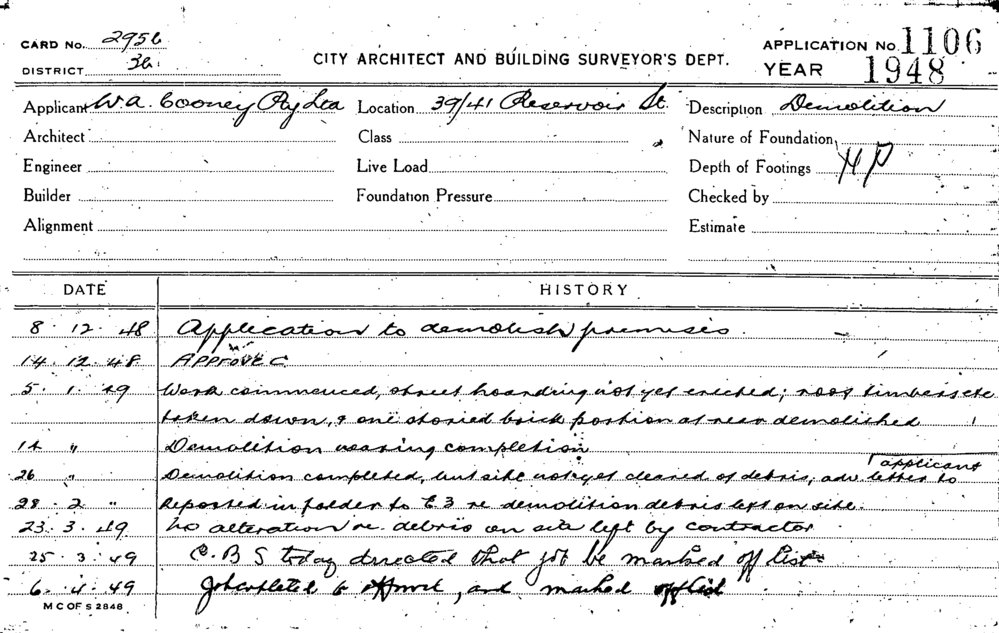 CARD No. 2956
DISTRICT 3b.
CITY ARCHITECT AND BUILDING SURVEYOR'S DEPT.
APPLICATION No. 1106
YEAR 1948
Applicant W.A. Cooney Pty Ltd Location 39/41 Reservoir St. Description Demolition
Architect Class Nature of Foundation
Engineer Live Load Depth of Footings HP
Builder Foundation Pressure Checked by
Alignment Estimate
DATE HISTORY
8. 12. 48 Application to demolish premises.
14. 12. 48 APPROVED
5. 1. 49 Work commenced, street hoarding not yet erected; roof timbers etc
taken down, & one storied brick portion at rear demolished
14 " Demolition nearing completion
applicant
26 " Demolition completed, but site not yet cleared of debris; adv. letter to
28. 2. " Reported in folder to E3 re demolition debris left on site.
23. 3. 49 No alteration re. debris on site left by contractor.
25. 3. 49 C.B.S today directed that job be marked off list
6. 4. 49 Job completed and marked off list
M C OF S 2848